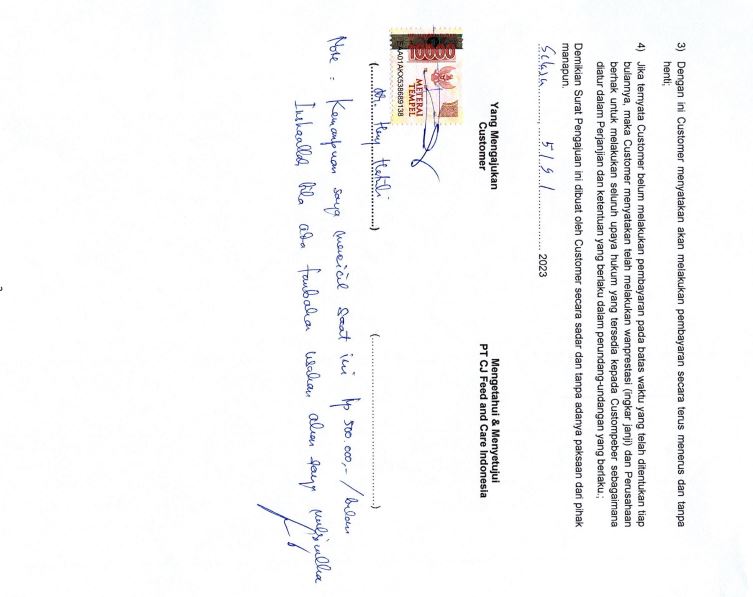 3) Dengan ini Customer menyatakan akan melakukan pembayaran secara terus menerus dan tanpa
henti;
4) Jika ternyata Customer belum melakukan pembayaran pada batas waktu yang telah ditentukan tiap
bulannya, maka Customer menyatakan telah melakukan wanprestasi (ingkar janji) dan Perusahaan
berhak untuk melakukan seluruh upaya hukum yang tersedia kepada Custompeber sebagaimana
diatur dalam Perjanjian dan ketentuan yang berlaku dalam perundang-undangan yang berlaku.;
Demikian Surat Pengajuan ini dibuat oleh Customer secara sadar dan tanpa adanya paksaan dari pihak
manapun.
Selasa, 5/9/ 2023
Yang Mengajukan
Customer
Mengetahui & Menyetujui
PT CJ Feed and Care Indonesia
10000
METERAI
TEMPEL
EAA01AKX538689138
(dr. Heny)
(..................................................)
Note : Kemampuan saya mencicil saat ini Rp 500.000,- / bulan
Inshaallah bila ada tambahan akan saya